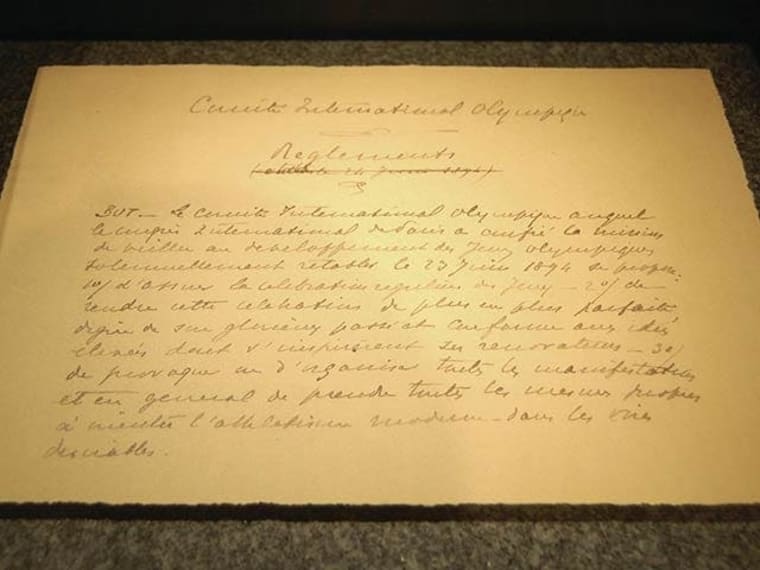 Comité International Olympique
Règlements
BUT — Le Comité International Olympique auquel
le Congrès International de Paris a confié la mission
de veiller au développement des Jeux Olympiques
solennellement rétablis le 23 Juin 1894 se propose:
1o/ d'assurer la célébration régulière des Jeux — 2o/ de
rendre cette célébration de plus en plus parfaite
digne de son glorieux passé et conforme aux idées
élevées dont s'inspirèrent ses rénovateurs — 3o/
de provoquer ou d'organiser toutes les manifestations
et en général de prendre toutes les mesures propres
à orienter l'athlétisme moderne dans les voies
désirables.